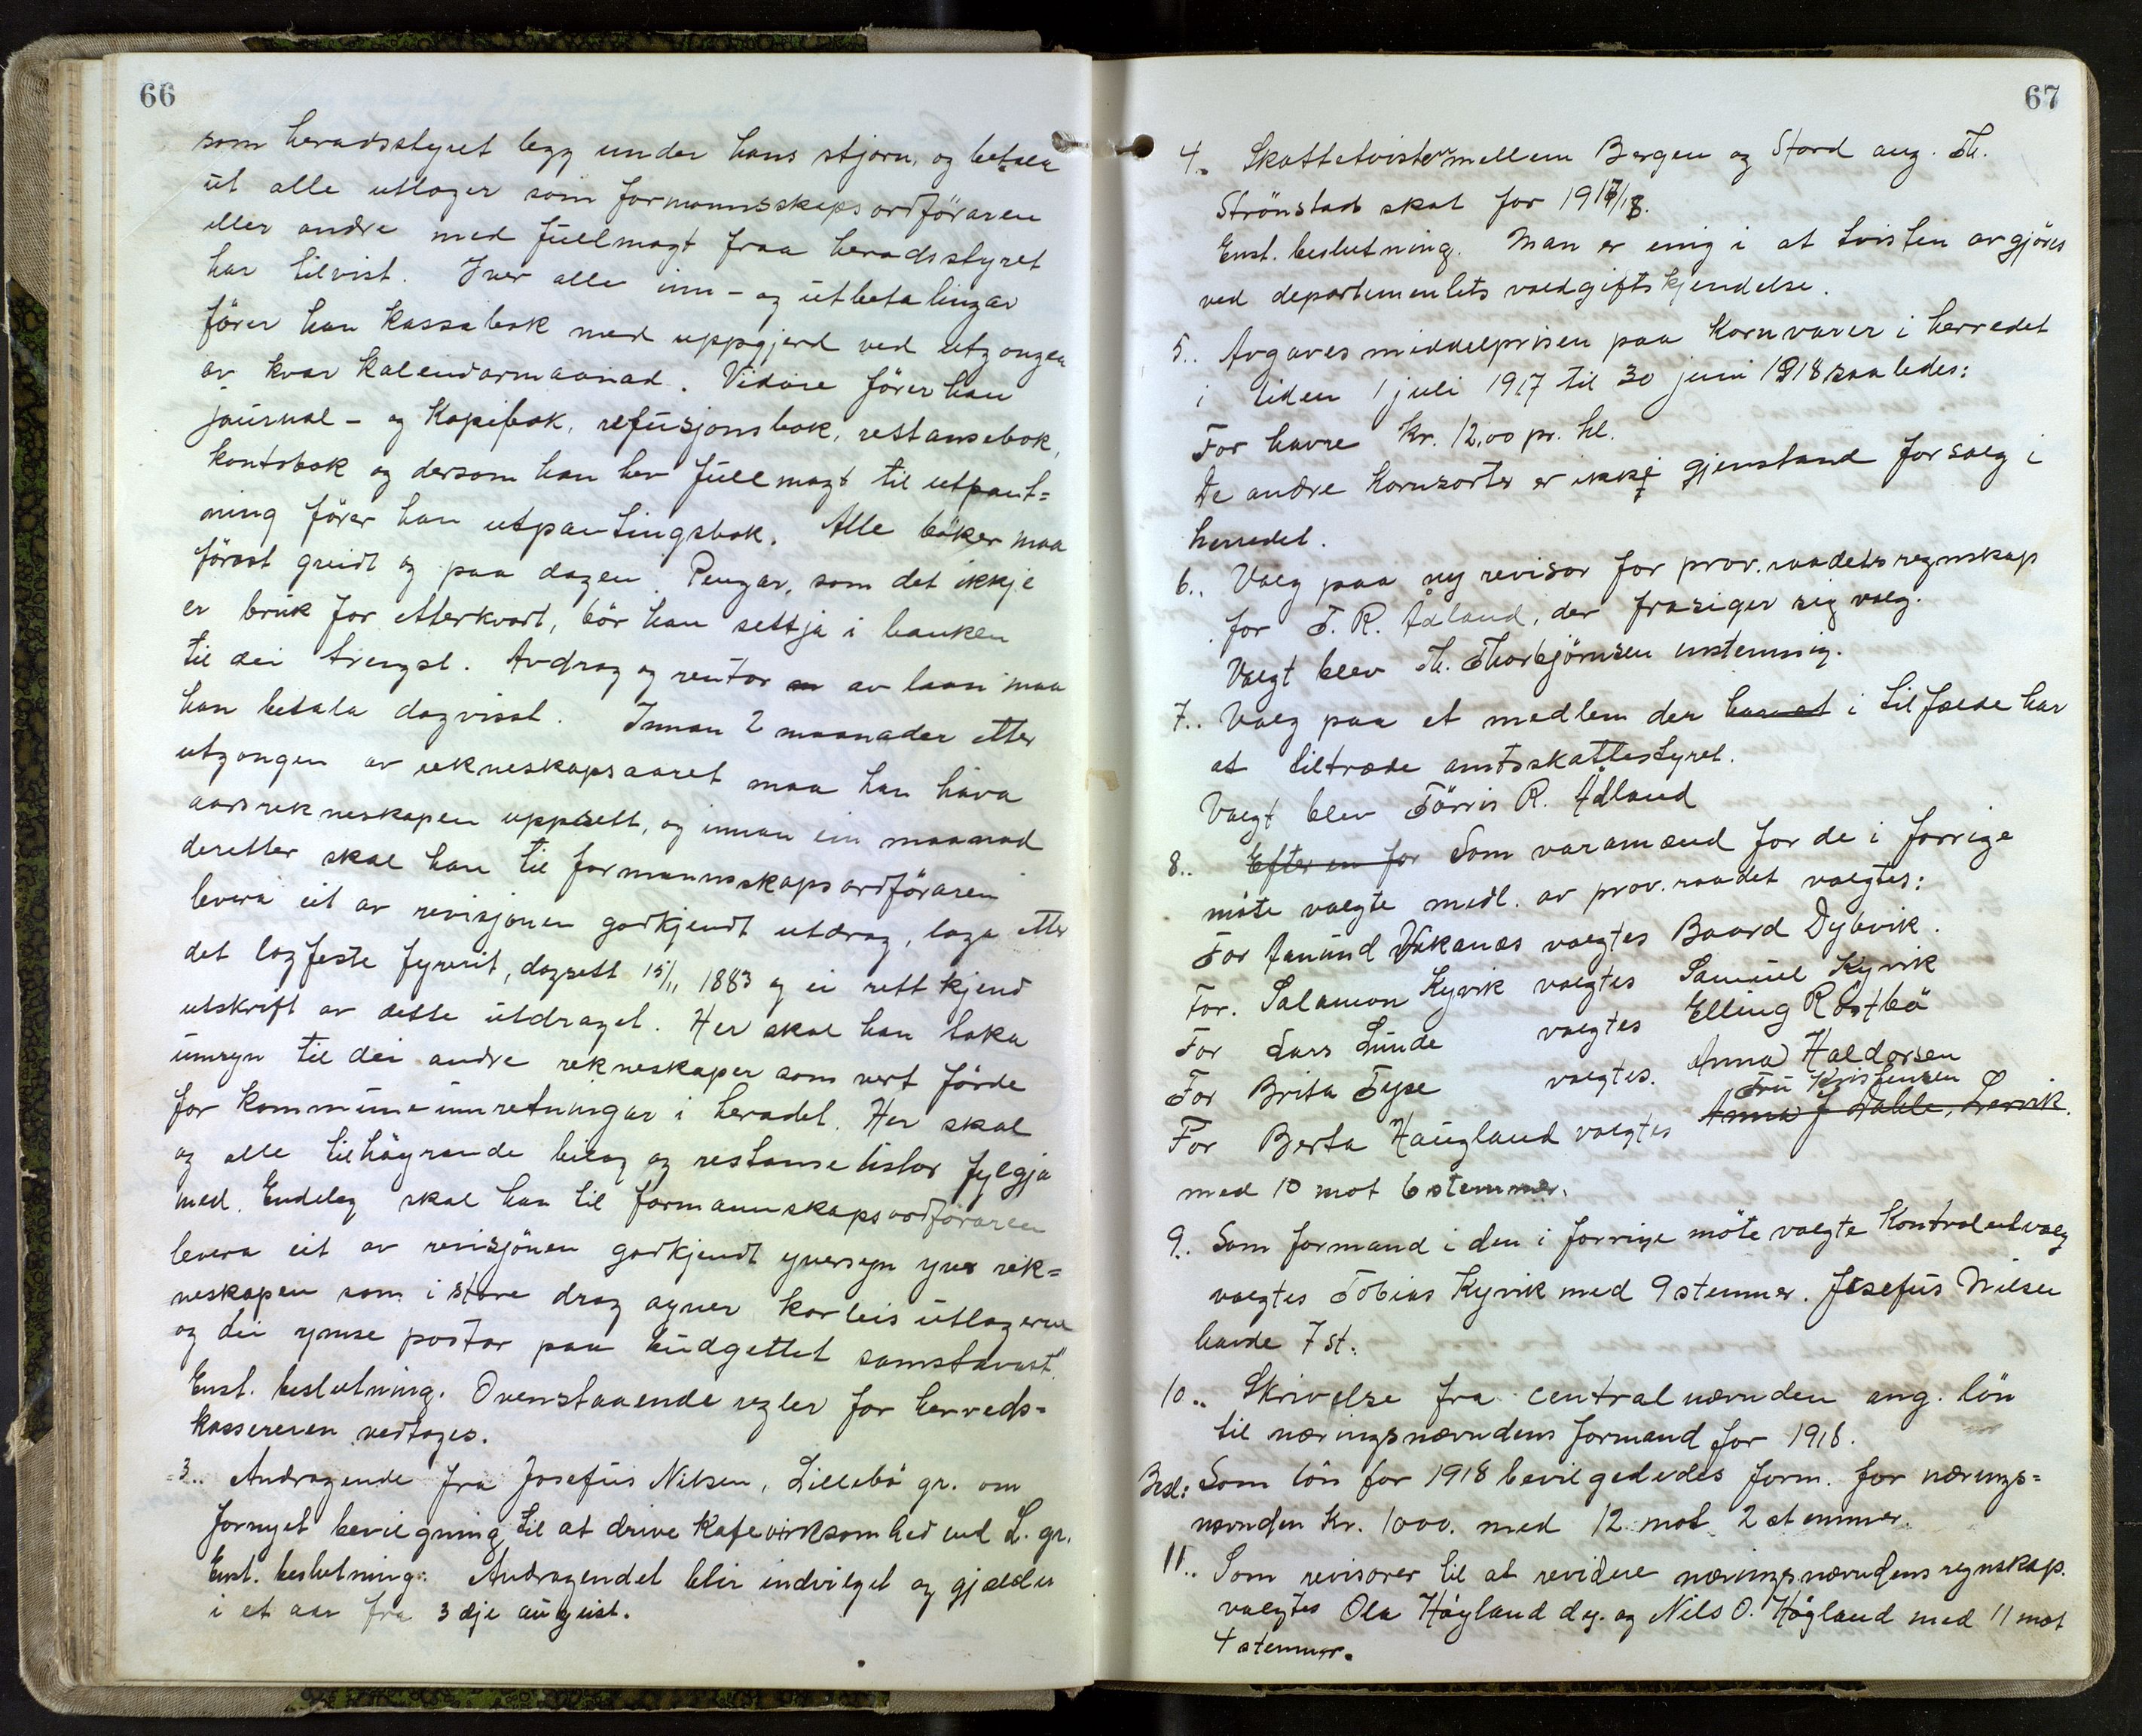 66
som heradsstyret legg under hans stjorn, og betala
ut alle utlogor som formannsskapsordföraren
eller andre med fullmagt fraa heradsstyret
har tilvist. Iver alle inn- og utbetalingar
förer han Kassabok med uppgjerd ved utgongen
av kvar kalendarmaanad. Vidare förer han
journal- og Kopibok, refusjonsbok, restansebok,
kontobok og dersom han hev fullmagt til utpant-
ning förer han utpantingsbok. Alle böker maa
förast greidt og paa dagen. Pengar, som det ikkje
er bruk for etterkvart, bör han settja i banken
til dei trengst. Avdrag og rentor av laan maa
han betala dagvisst. Innan 2 maanader etter
utgongen av rekneskapsaaret maa han hava
aarsrekneskapen uppsett, og innan ein maanad
deretter skal han til formannsskapsordföraren
levera eit av revisjonen godkjendt utdrag, laga etter
det logfeste fyrerit, dagsett 15/11 1883 og ei rett kjend
utskrift av dette utdraget. Her skal han taka
umsyn til dei andre rekneskaper som vert förde
for kommuneinnretningar i heradet. Her skal
og alle tilhöyrande bilag og restanselistor fylgja
med. Endeleg skal han til formannskapsordföraren
levera eit av revisjonen godkjendt yversyn yver rek-
neskapen som i store drag syner korleis utlogerne
og dei ymse postar paa budgettet samstavast."
Enst. beslutning. Ovenstaaende regler for herreds-
kassereren vedtages.
3.. Andragende fra Josefus Nilsen, Lillebö gr. om
fornyet bevilgning til at drive Kafevirksomhed ved L. gr.
Enst. beslutning: Andragendet blir indvilget og gjælder
i et aar fra 3dje august.
67
4.. Skattetvisten mellem Bergen og Stord ang. Th.
Strönstads skat for 1917/18.
Enst. beslutning. Man er enig i at tvisten avgjöres
ved departementets voldgiftskjendelse.
5.. Avgaves middelprisen paa Kornvarer i herredet
i tiden 1 juli 1917 til 30 juni 1918 saaledes:
For havre kr. 12,00 pr. hl.
De andre Kornsorter er ikke gjenstand for salg i
herredet.
6.. Valg paa ny revisor for prov.raadets regnskap
for T. R. Ådland, der frasiger sig valg.
Valgt blev Th. Thorbjörnsen enstemmig.
7.. Valg paa et medlem der har at i tilfælde har
at tiltræde amtsskattestyret.
Valgt blev Törris R. Ådland
8.. Efter en for Som varamænd for de i forrige
möte valgte medl. av prov.raadet valgtes:
For Amund Vikanæs valgtes Baard Dybvik.
For. Salamon Kyvik valgtes Samuel Kyvik
For Lars Lunde valgtes Elling Rostbö
For Brita Tyse valgtes. Anna Haldorsen
Fru Kristensen
For Berta Haugland valgtes Anna J Dahle, Lervik.
med 10 mot 6 stemmer.
9.. Som formand i den i forrige möte valgte Kontrolutvalg
valgtes Tobias Kyvik med 9 stemmer. Josefus Nilsen
havde 7 st.
10.. Skrivelse fra centralnævnden ang. lön
til næringsnævndens formand for 1918.
Besl: Som lön for 1918 bevilgededes form. for nærings-
nævnden Kr. 1000. med 12 mot 2 stemmer.
11.. Som revisorer til at revidere næringsnævndens regnskap.
valgtes Ola Höyland dy. og Nils O. Högland med 11 mot
4 stemmer.